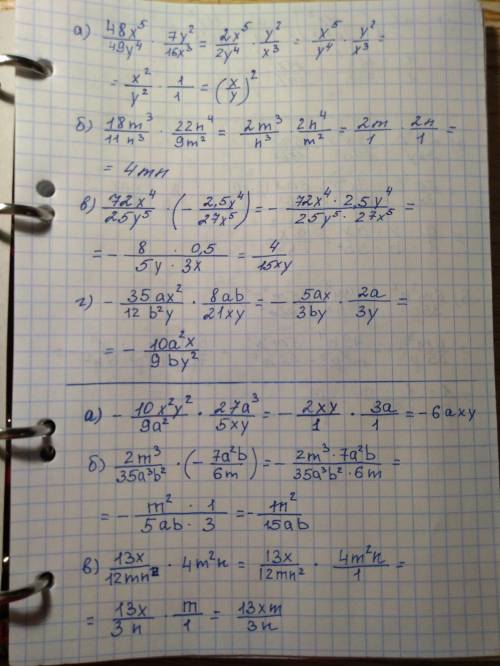 а) 48x⁵/49y⁴ · 7y²/16x³ = 2x⁵/2y⁴ · y²/x³ = x⁵/y⁴ · y²/x³ =
= x²/y² · 1/1 = (x/y)²
б) 18m³/11n³ · 22n⁴/9m² = 2m³/n³ · 2n⁴/m² = 2m/1 · 2n/1 =
= 4mn
в) 72x⁴/25y⁵ · (- 2,5y⁴/27x⁵) = - 72x⁴ · 2,5y⁴/25y⁵ · 27x⁵ =
= - 8 · 0,5/5y · 3x = 4/15xy
г) - 35ax²/12b²y · 8ab/21xy = - 5ax/3by · 2a/3y =
= - 10a²x/9by²
а) - 10x²y²/9a² · 27a³/5xy = - 2xy/1 · 3a/1 = -6axy
б) 2m³/35a³b² · (- 7a²b/6m) = - 2m³ · 7a²b/35a³b² · 6m =
= - m² · 1/5ab · 3 = - m²/15ab
в) 13x/12mn² · 4m²n = 13x/12mn² · 4m²n/1 =
= 13x/3n · m/1 = 13xm/3n